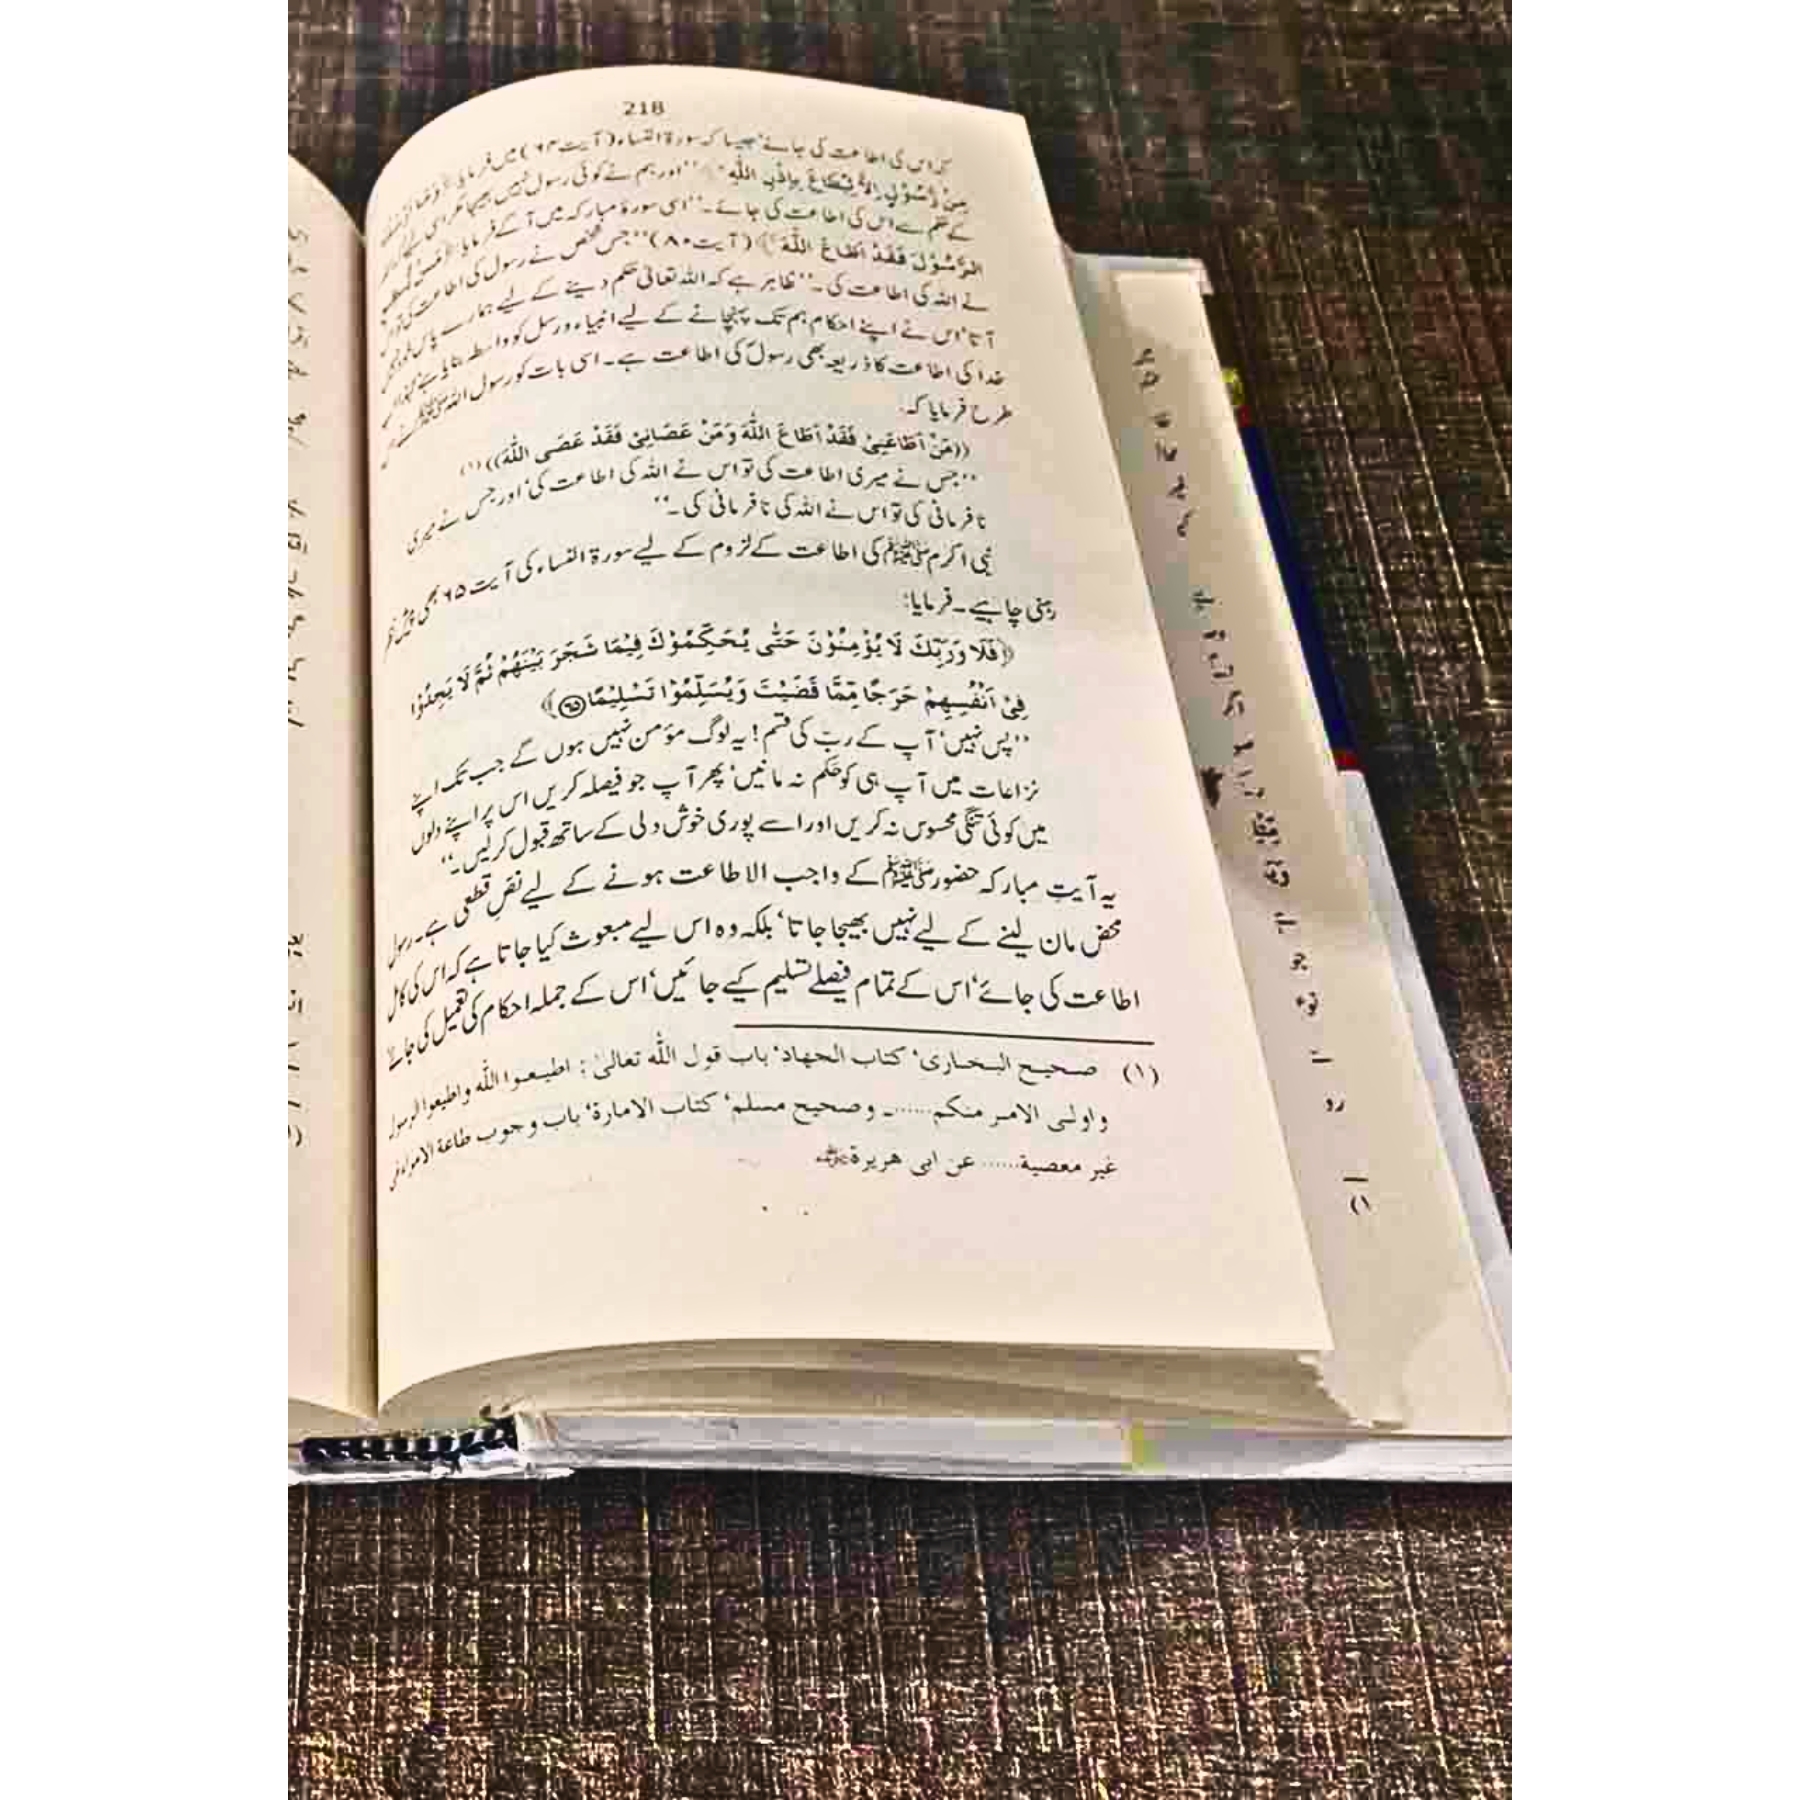 218
کہ اس کی اطاعت کی جائے‘ جیسا کہ سورۃ النساء (آیت ۶۴) میں فرمایا: ﴿وَمَآ اَرْسَلْنَا
مِنْ رَّسُوْلٍ اِلَّا لِیُطَاعَ بِاِذْنِ اللّٰہِ ؕ﴾ ’’اور ہم نے کوئی رسول نہیں بھیجا مگر اسی لیے کہ اللہ
کے حکم سے اس کی اطاعت کی جائے۔‘‘ اسی سورۂ مبارکہ میں آگے فرمایا: ﴿مَنْ یُّطِعِ
الرَّسُوْلَ فَقَدْ اَطَاعَ اللّٰہَ ۚ﴾ (آیت ۸۰) ’’جس شخص نے رسول کی اطاعت کی تو اس
نے اللہ کی اطاعت کی۔‘‘ ظاہر ہے کہ اللہ تعالیٰ حکم دینے کے لیے ہمارے پاس خود نہیں
آتا‘ اس نے اپنے احکام ہم تک پہنچانے کے لیے انبیاء و رسل کو واسطہ بنایا ہے‘ لہٰذا اب
خدا کی اطاعت کا ذریعہ بھی رسولؐ کی اطاعت ہے۔ اسی بات کو رسول اللہ ﷺ نے اس
طرح فرمایا کہ:
((مَنْ اَطَاعَنِیْ فَقَدْ اَطَاعَ اللّٰہَ وَمَنْ عَصَانِیْ فَقَدْ عَصَی اللّٰہَ)) (۱)
’’جس نے میری اطاعت کی تو اس نے اللہ کی اطاعت کی‘ اور جس نے میری
نافرمانی کی تو اس نے اللہ کی نافرمانی کی۔‘‘
نبی اکرم ﷺ کی اطاعت کے لزوم کے لیے سورۃ النساء کی آیت ۶۵ بھی پیش نظر
رہنی چاہیے۔ فرمایا:
﴿فَلَا وَرَبِّکَ لَا یُؤْمِنُوْنَ حَتّٰی یُحَکِّمُوْکَ فِیْمَا شَجَرَ بَیْنَھُمْ ثُمَّ لَا یَجِدُوْا
فِیْ اَنْفُسِھِمْ حَرَجًا مِّمَّا قَضَیْتَ وَیُسَلِّمُوْا تَسْلِیْمًا ۶۵﴾
’’پس نہیں‘ آپ کے ربّ کی قسم! یہ لوگ مؤمن نہیں ہوں گے جب تک اپنے
نزاعات میں آپ ہی کو حَکم نہ مانیں‘ پھر آپ جو فیصلہ کریں اس پر اپنے دلوں
میں کوئی تنگی محسوس نہ کریں اور اسے پوری خوش دلی کے ساتھ قبول کر لیں۔‘‘
یہ آیتِ مبارکہ حضور ﷺ کے واجب الاطاعت ہونے کے لیے نصِ قطعی ہے۔ رسول
محض مان لینے کے لیے نہیں بھیجا جاتا‘ بلکہ وہ اس لیے مبعوث کیا جاتا ہے کہ اس کی کامل
اطاعت کی جائے‘ اس کے تمام فیصلے تسلیم کیے جائیں‘ اس کے جملہ احکام کی تعمیل کی جائے‘
(۱) صحیح البخاری‘ کتاب الجهاد‘ باب قول اللّٰه تعالیٰ: اطیعوا اللّٰه واطیعوا الرسول
واولی الامر منکم......۔ وصحیح مسلم‘ کتاب الامارة‘ باب وجوب طاعة الامراء فی
غیر معصیة...... عن ابی هریرة